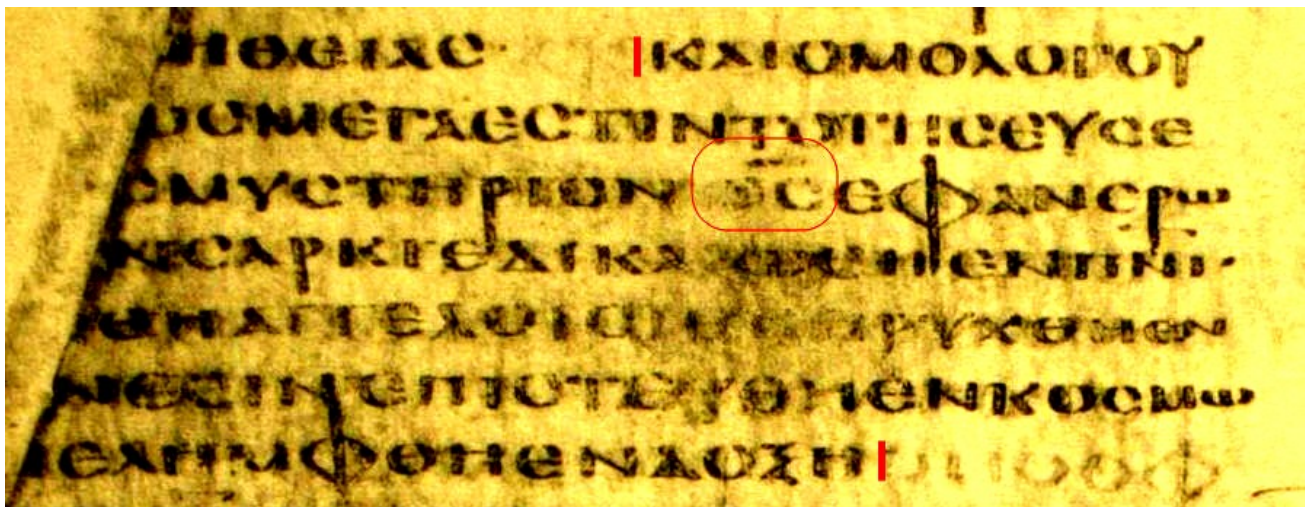 ΗΘΕΙΑϹ· ΚΑΙΟΜΟΛΟΓΟΥ
ΩϹΜΕΓΑΕϹΤΙΝΤΟΤΗϹΕΥϹΕ
ϹΜΥϹΤΗΡΙΟΝΘ̅Ϲ̅ΕΦΑΝΕΡΩ
ΝϹΑΡΚΙΕΔΙΚΑΙΩΘΗΕΝΠ̅Ν̅Ι̅·
ΘΗΑΓΓΕΛΟΙϹΕΚΗΡΥΧΘΗΕΝ
ΝΕϹΙΝΕΠΙϹΤΕΥΘΗΕΝΚΟϹΜΩ
ΕΛΗΜΦΘΗΕΝΔΟΞΗ